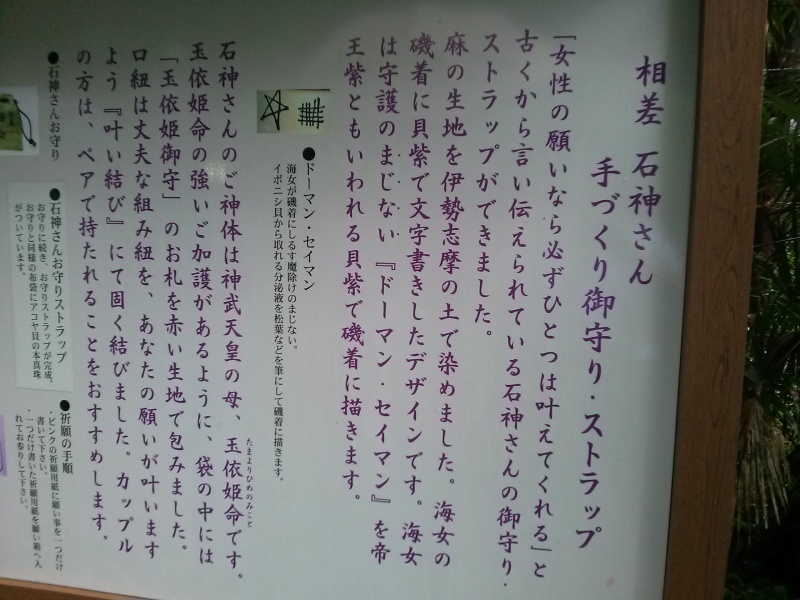 相差 石神さん
手づくり御守り・ストラップ
「女性の願いなら必ずひとつは叶えてくれる」と
古くから言い伝えられている石神さんの御守り・
ストラップができました。
麻の生地を伊勢志摩の土で染めました。海女の
磯着に貝紫で文字書きしたデザインです。海女
は守護のまじない『ドーマン・セイマン』を帝
王紫ともいわれる貝紫で磯着に描きます。
●ドーマン・セイマン
海女が磯着にしるす魔除けのまじない。
イボニシ貝から取れる分泌液を松葉などを筆にして磯着に描きます。
石神さんのご神体は神武天皇の母、玉依姫命です。
たまよりひめのみこと
玉依姫命の強いご加護があるように、袋の中には
「玉依姫御守」のお札を赤い生地で包みました。
口紐は丈夫な組み紐を、あなたの願いが叶います
よう『叶い結び』にて固く結びました。カップル
の方は、ペアで持たれることをおすすめします。
●石神さんお守り
●石神さんお守りストラップ
お守りに続き、お守りストラップが完成。
お守りと同様の布袋にアコヤ貝の本真珠
がついています。
●祈願の手順
・ピンクの祈願用紙に願い事を一つだけ
書いて下さい。
・一つだけ書いた祈願用紙を願い箱へ入
れてお参りして下さい。